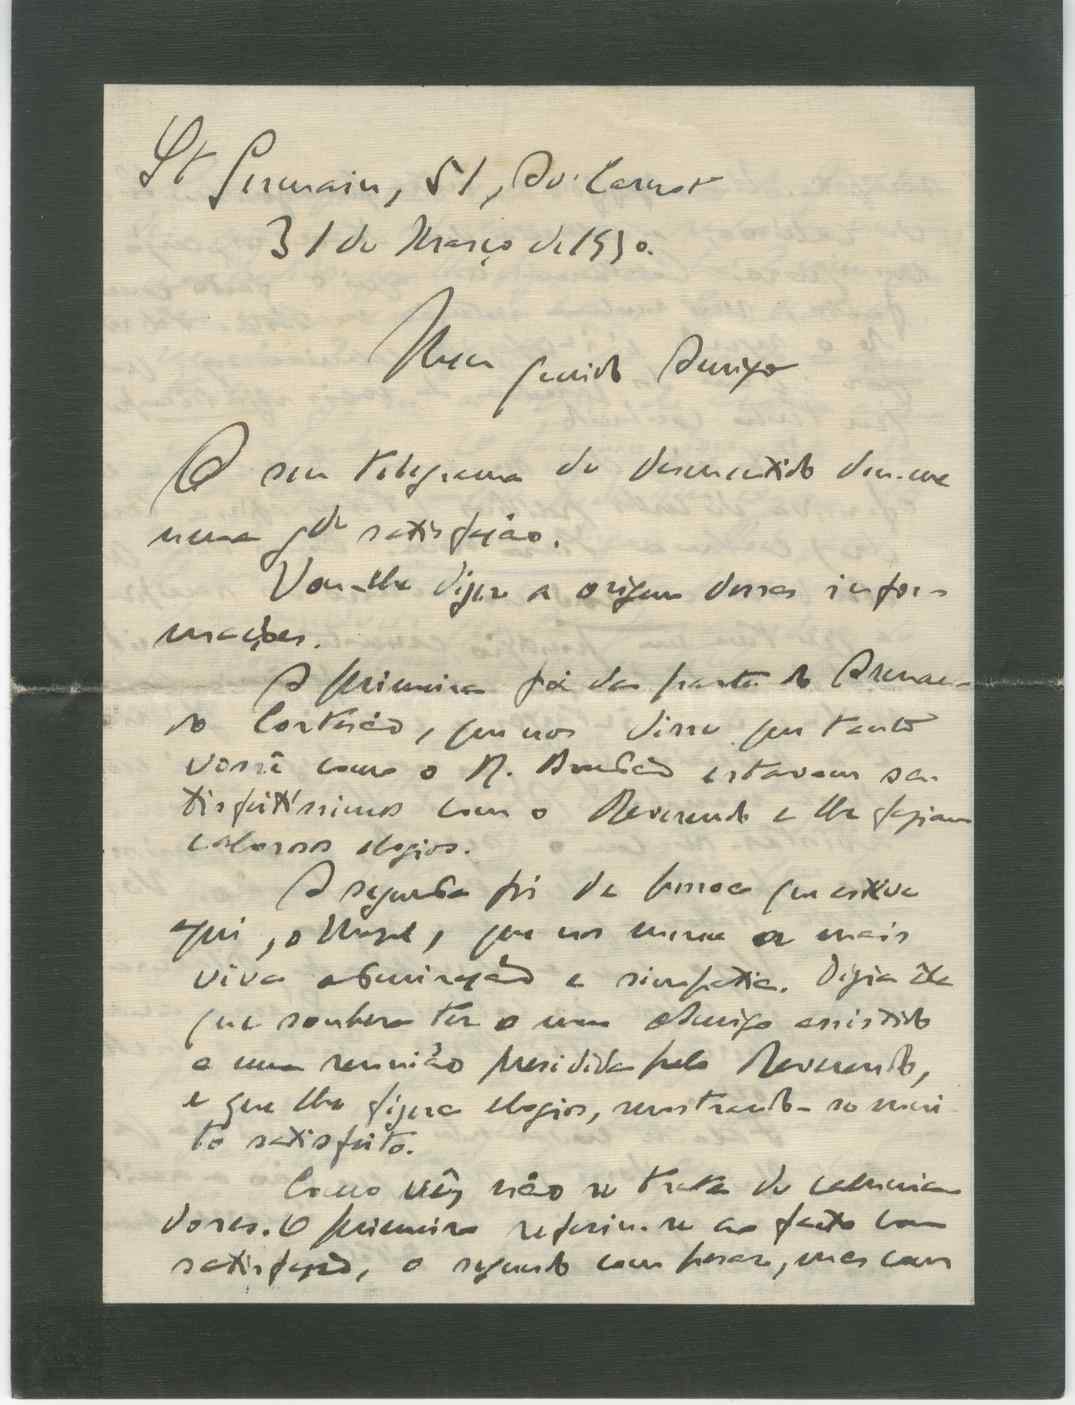 St Germain, 51, Av. Carnot
31 de Março de 1930.
Meu querido Amigo
O seu telegrama de desmentido deu-me
uma gde satisfação.
Vou-lhe dizer a origem dessas infor-
mações.
A primeira foi da parte do Armando
Cortesão, que nos disse que tanto
você como o R. Brandão estavam sa-
tisfeitíssimos com o Reverendo e lhe faziam
calorosos elogios.
A segunda foi de pessoa que esteve
aqui, o, que nos merece a mais
viva admiração e simpatia. Dizia êle
que soubera ter o meu Amigo assistido
a uma reunião presidida pelo Reverendo,
e que lhe fizera elogios, mostrando-se mui
to satisfeito.
Como vêj não se trata de calunia
dores. O primeiro referiu-se ao facto com
satisfação, o segundo com pesar, mas com